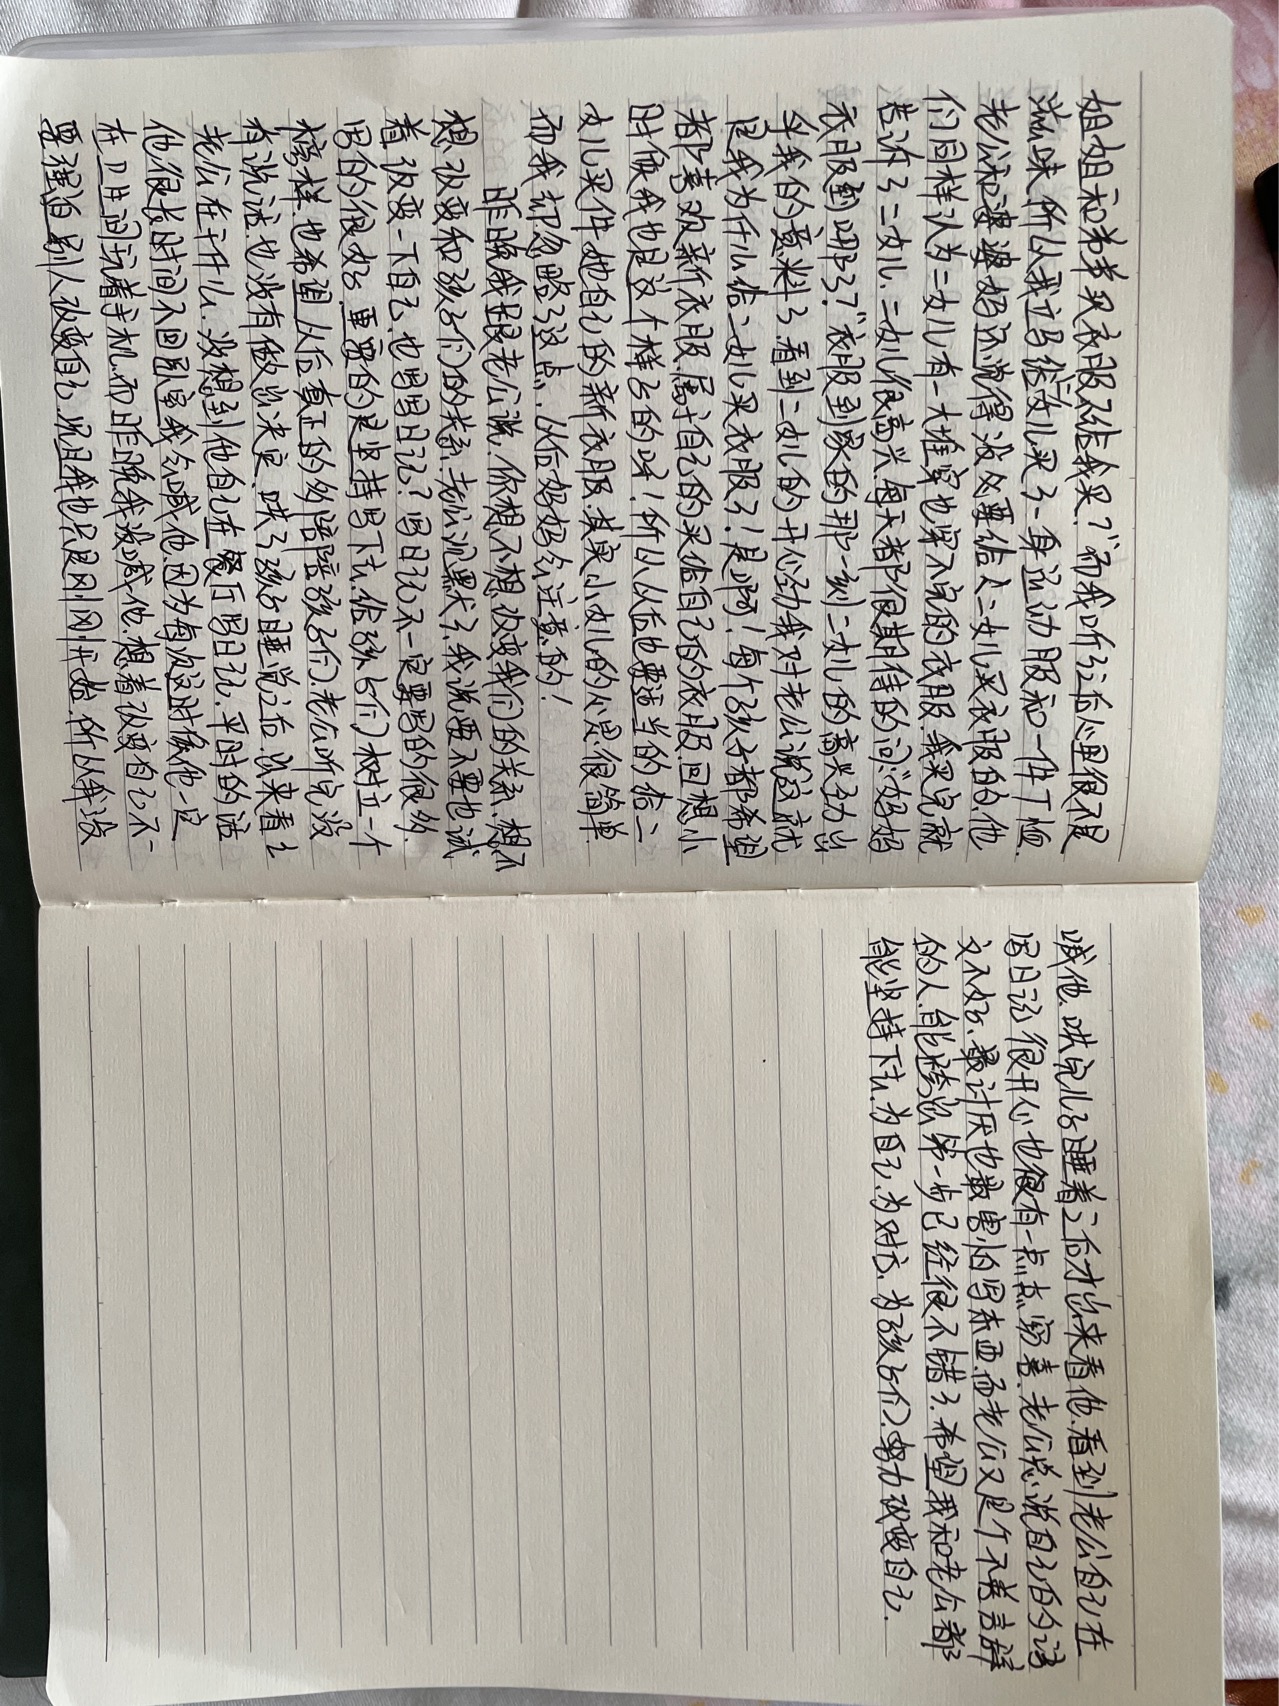 姐姐和弟弟买衣服不给我买？”而我听了之后心里很不是
滋味，所以我立马给二女儿买了一身运动服和一件T恤.
老公和婆婆妈还觉得没必要给二女儿买衣服的，他
们同样认为二女儿有一大堆穿也穿不完的衣服.我买完就
告诉了二女儿，二女儿很高兴，每天都很期待的问：“妈妈
衣服到哪了？”衣服到家的那一刻二女儿的高兴劲出
乎我的意料了.看到二女儿的开心劲我对老公说这就
是我为什么给二女儿买衣服了！是啊！每个孩子都希望
都喜欢新衣服，属于自己的买给自己的衣服，回想小
时候我也是这个样子的呀！所以从后也要适当的给二
女儿买件她自己的新衣服，其实小女儿的心思很简单
而我却忽略了这点.从后妈妈会注意的！
昨晚我跟老公说，你想不想改变我们的关系，想不
想改变和孩子们的关系，老公沉默了，我说要不要也试
着改变一下自己，也写写日记？写日记不一定要写的很多，
写的很好，重要的是坚持写下去，给孩子们树立一个
榜样.也希望从后真正的多陪陪孩子们，老公听完没
有说话，也没有做出决定，哄了孩子睡觉之后，出来看看
老公在干什么，没想到他自己在餐厅写日记，平时的话
他很长时间不回卧室我会喊他，因为每次这时候他一定
在卫生间玩着手机，而昨晚我没喊他，想着改变自己不
要强迫别人改变自己，况且我也只是刚刚开始，所以我没
喊他，哄完儿子睡着之后才出来看他，看到老公自己在
写日记很开心也很有一点点窃喜，老公总说自己的语
文不好，最讨厌也最害怕写东西，而老公又是个不善言辞
的人，能跨出第一步已经很不错了，希望我和老公都
能坚持下去，为自己，为对方，为孩子们，努力改变自己.